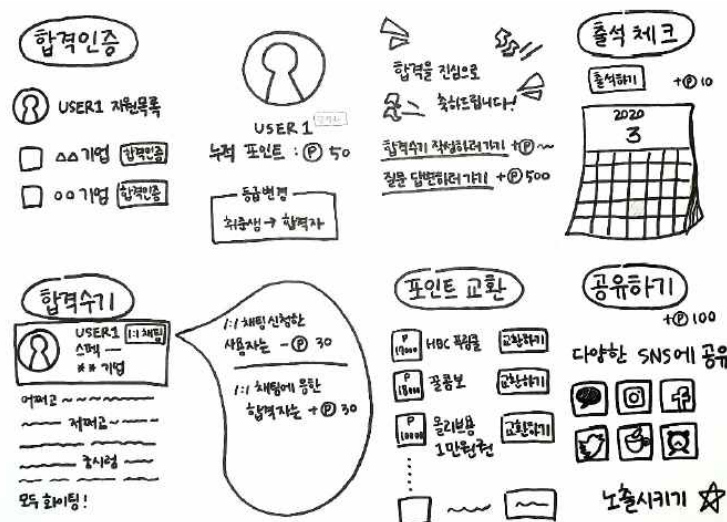 합격인증
USER1 지원목록
△△ 기업 합격인증
○○ 기업 합격인증
USER1
누적 포인트 : Ⓟ 50
등급변경
취준생 → 합격자
합격을 진심으로
축하드립니다!
합격수기 작성하러가기 +Ⓟ ~
질문 답변하러가기 +Ⓟ 500
출석 체크
출석하기 +Ⓟ 10
2020
3
합격수기
USER1 1:1 채팅
스펙 —
** 기업
어쩌고 ~
저쩌고 ~
모두 화이팅!
1:1 채팅신청한
사용자는 -Ⓟ 30
1:1 채팅에 응한
합격자는 +Ⓟ 30
포인트 교환
P HBC 교환하기
P 꿀콤보 교환하기
P 10000 올리브영 교환하기
1만원권
공유하기
+Ⓟ 100
다양한 SNS에 공유
노출시키기 ☆